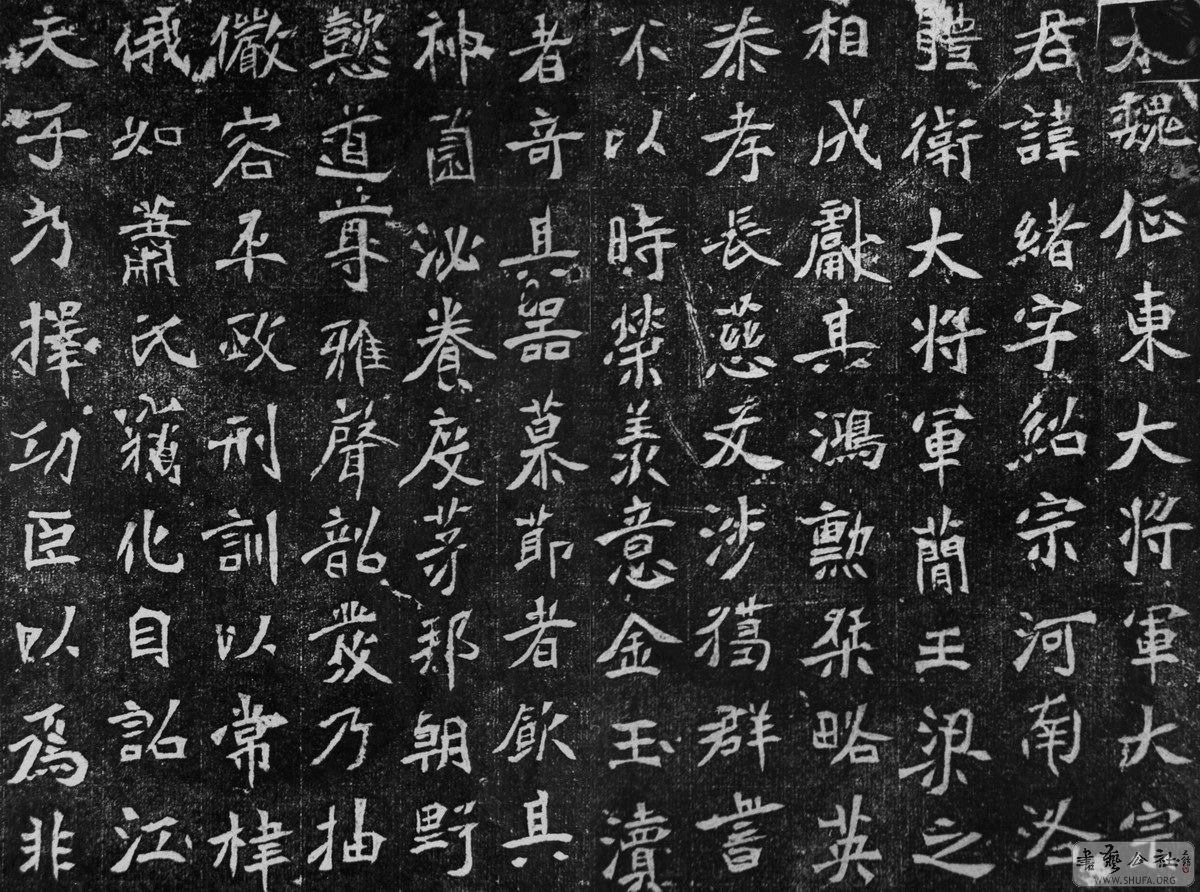 大魏征東大將軍大宗
君諱緒字紹宗河南洛
體衛大將軍簡王梁之
相成獻其鴻勲桀略英
恭孝長慈友涉獦群書
不以時榮羨意金玉瀆
者奇其器慕節者飲其
神薗泌養度茅邦朝野
懿道尊雅聲韶發乃抽
儼容平政刑訓以常律
俄如蕭氏竊化自詔江
天子乃擇功臣以爲非
書藝公社
WWW.SHUFA.ORG